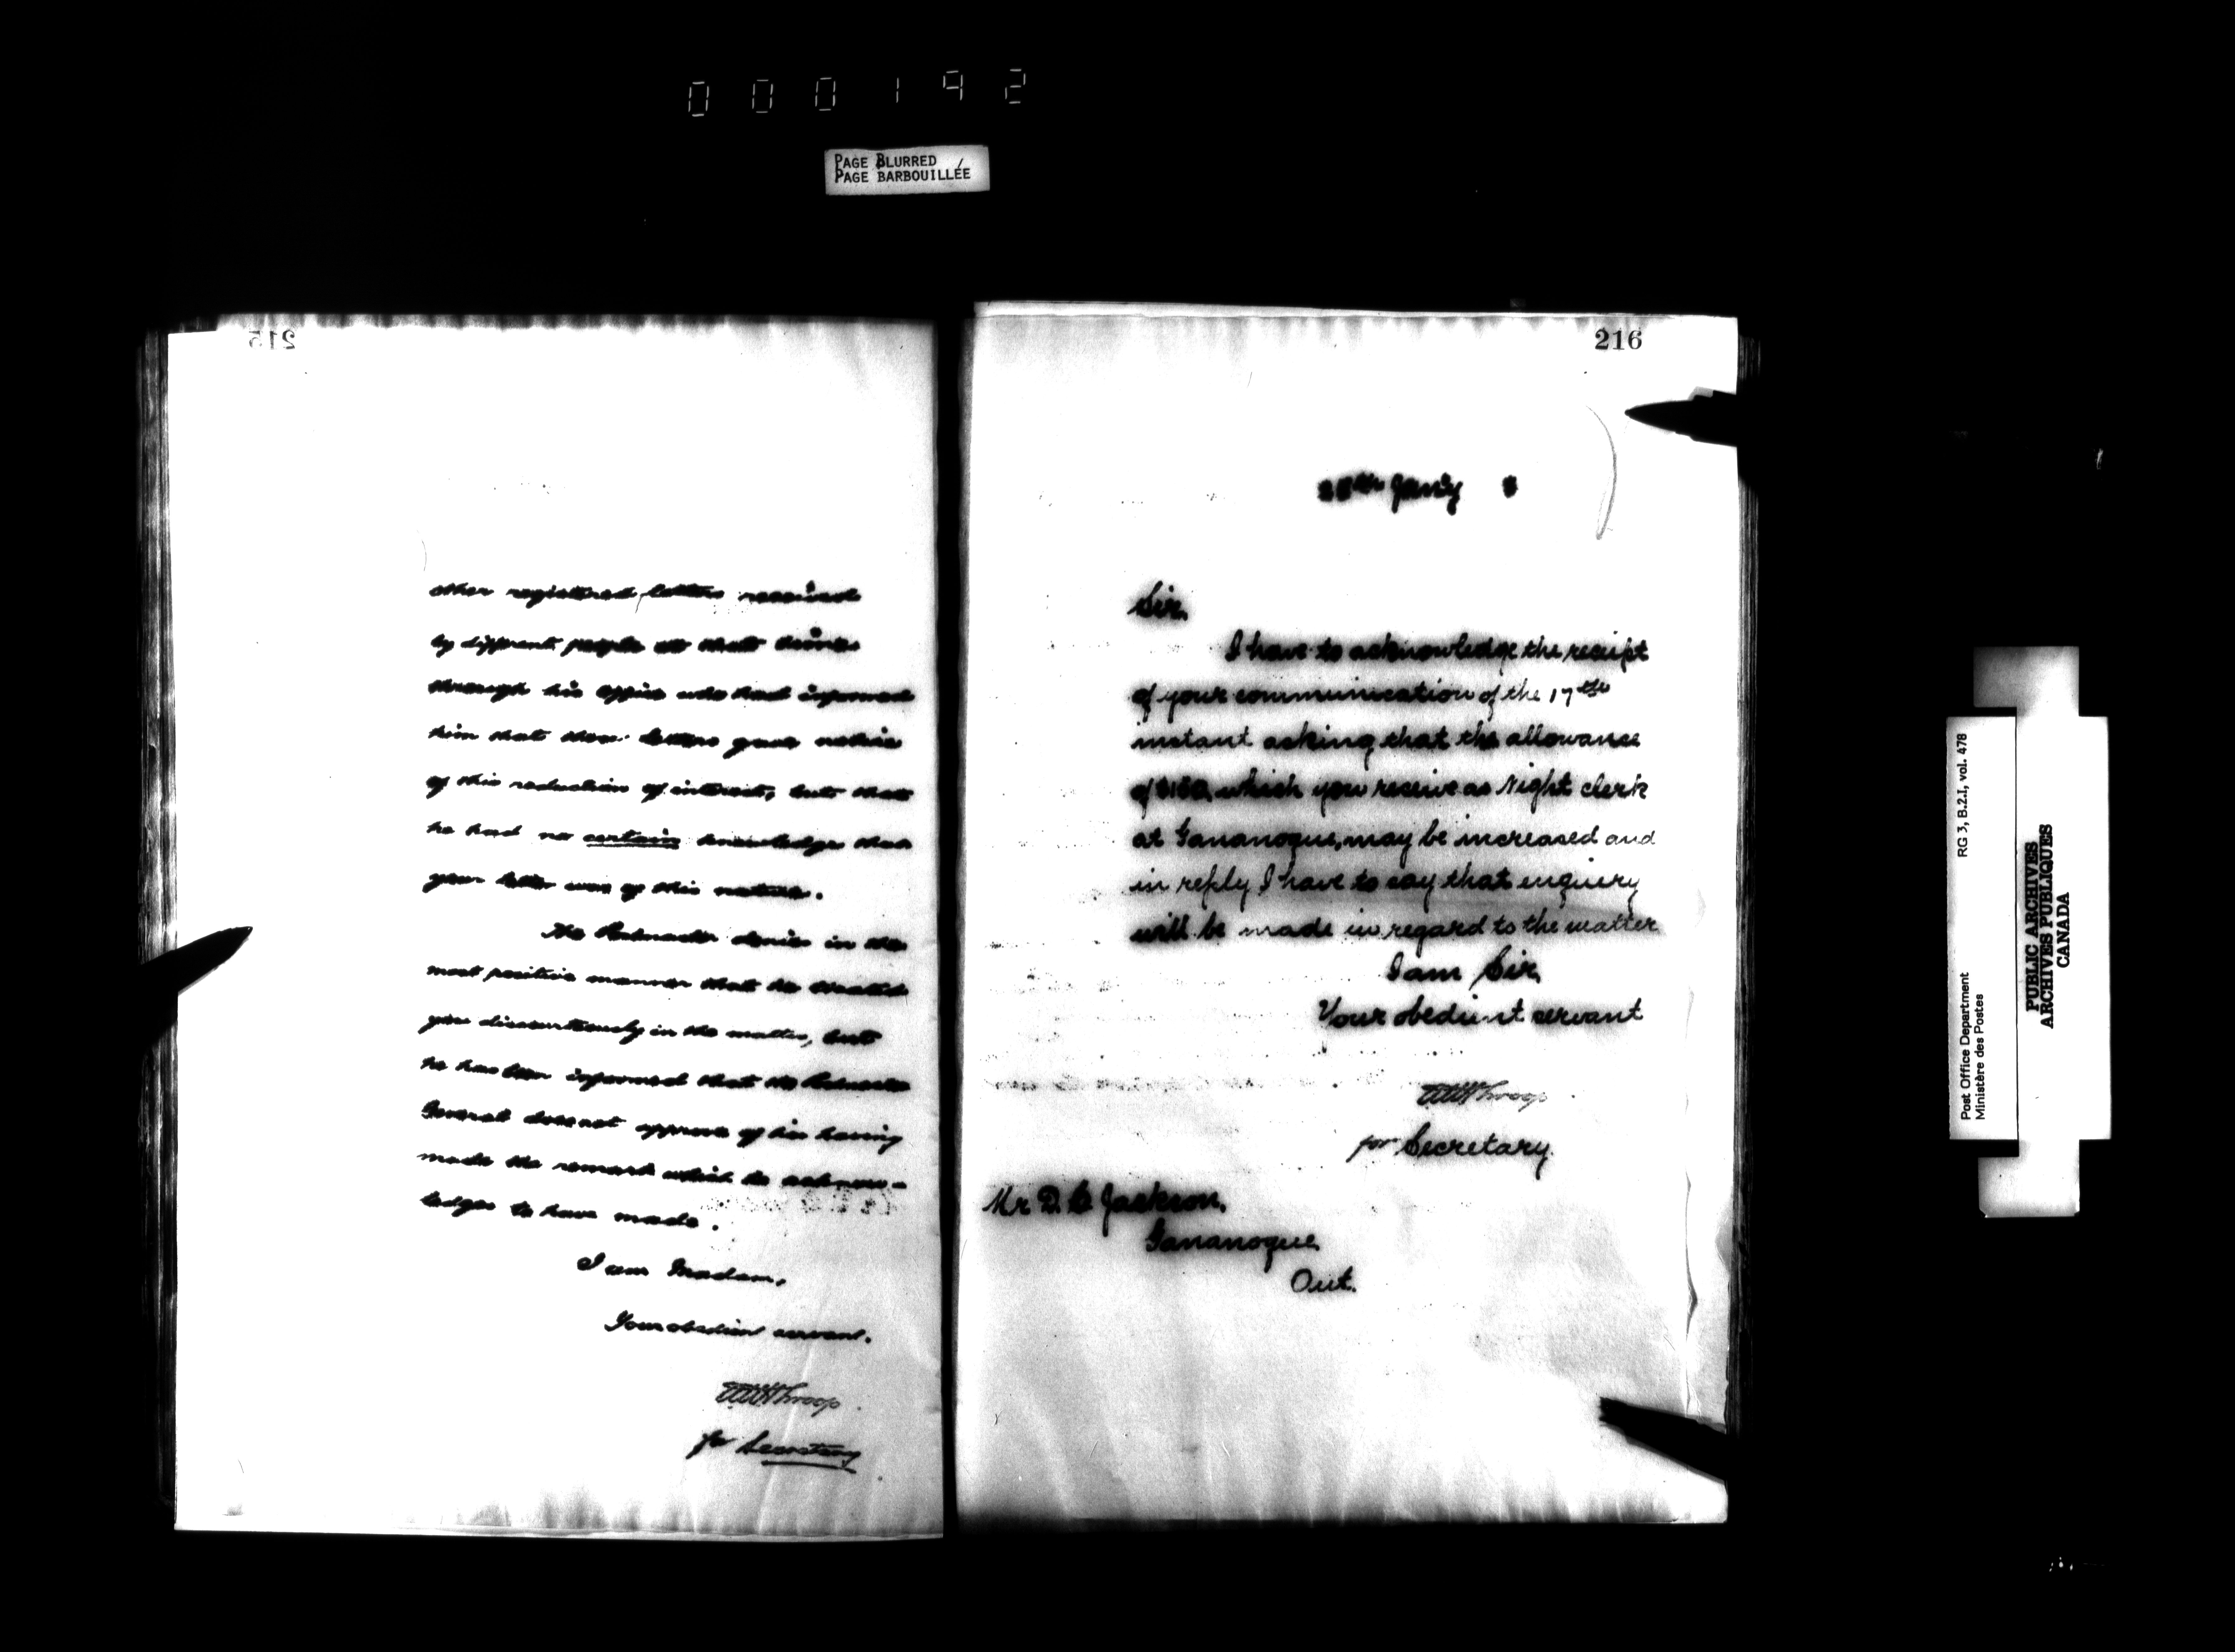 000192
PAGE BLURRED
PAGE BARBOUILLÉE
215
other registered letters received
by different people at that time
through his office who had informed
him that these letters gave notice
of this reduction of interest, but that
he had no certain knowledge that
your letter was of this nature.
The Postmaster denies in the
most positive manner that he treated
you discourteously in the matter, but
he has been informed that the Postmaster
General does not approve of his having
made the remark which he acknow-
ledges to have made.
I am Madam,
Your obedient servant.
Throop
for Secretary
216
Jan'y
Sir,
I have to acknowledge the receipt
of your communication of the 17th
instant asking that the allowance
of which you receive as Night clerk
at Gananoque, may be increased and
in reply I have to say that enquiry
will be made in regard to the matter
I am Sir,
Your obedient servant
Throop
for Secretary.
Mr D. C Jackson,
Gananoque
Ont.
RG 3, B.2.I, vol. 478
Post Office Department
Ministère des Postes
PUBLIC ARCHIVES
ARCHIVES PUBLIQUES
CANADA